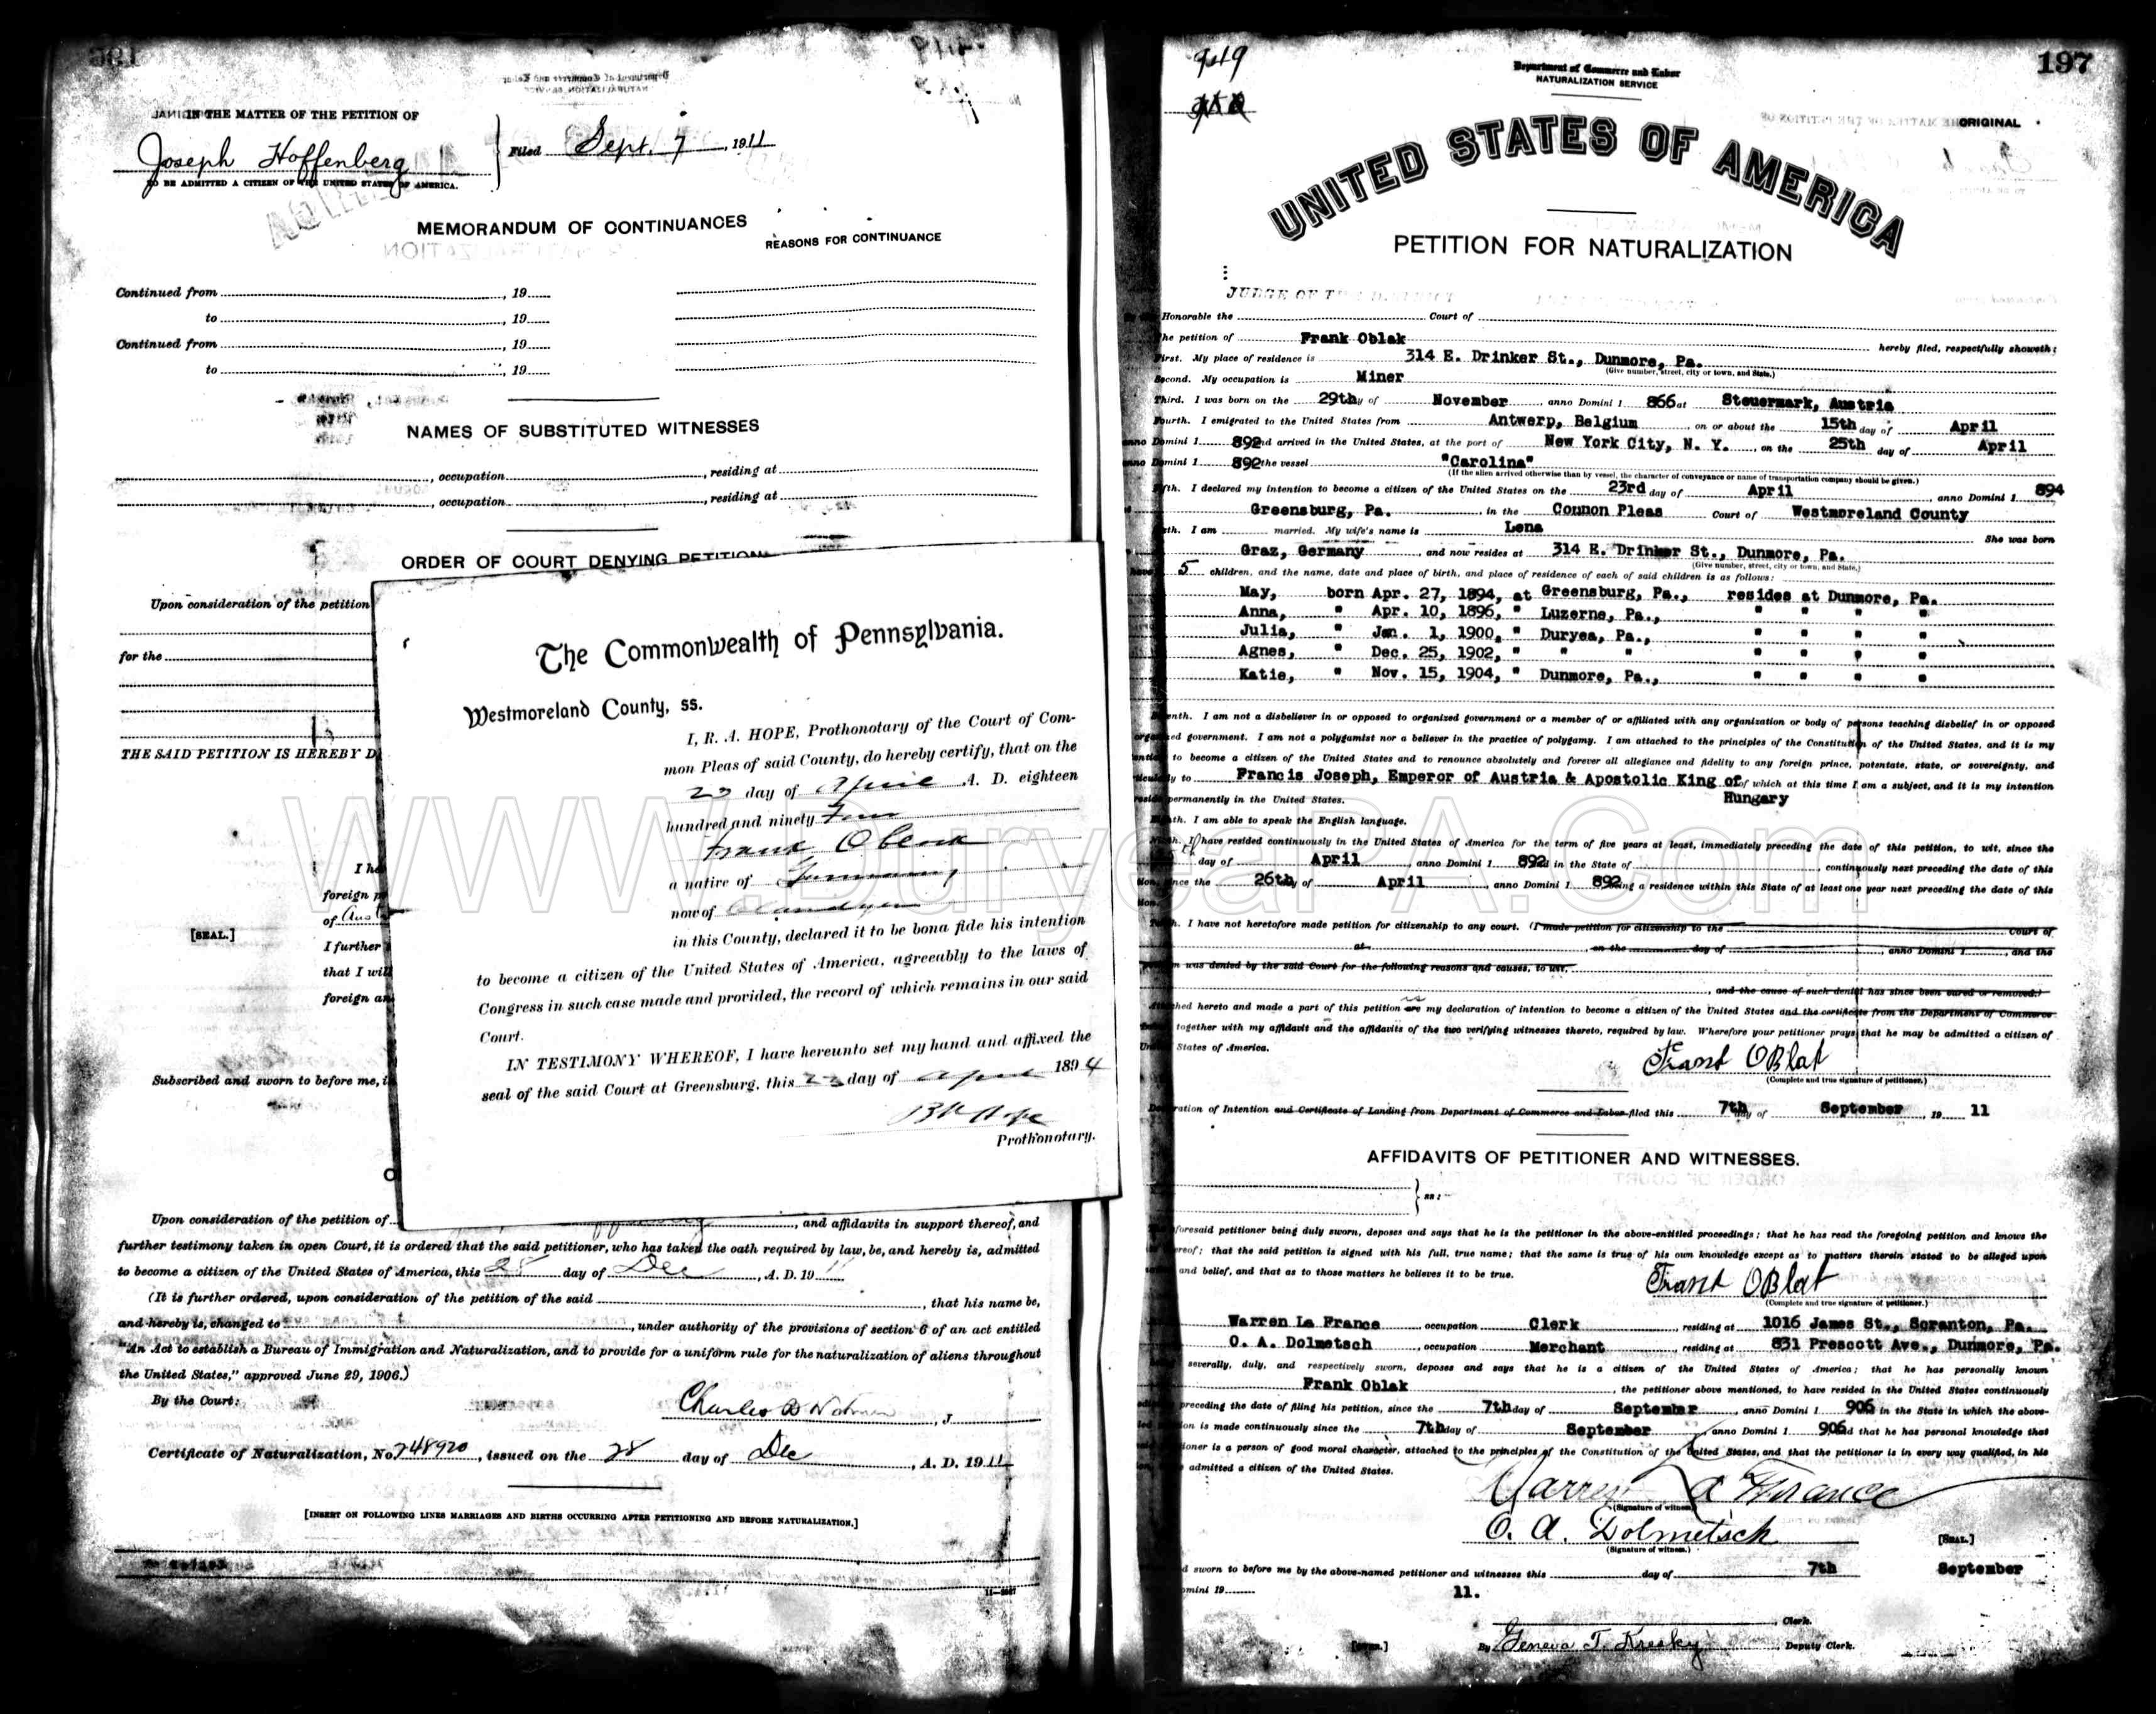 IN THE MATTER OF THE PETITION OF
Joseph Hoffenberg
Filed Sept. 7, 1911
TO BE ADMITTED A CITIZEN OF THE UNITED STATES OF AMERICA.
MEMORANDUM OF CONTINUANCES
REASONS FOR CONTINUANCE
Continued from , 19
to , 19
Continued from , 19
to , 19
NAMES OF SUBSTITUTED WITNESSES
, occupation , residing at
, occupation , residing at
ORDER OF COURT DENYING PETITION
Upon consideration of the petition
for the
THE SAID PETITION IS HEREBY D
I he
foreign p
of Aust
[SEAL.]
I further
that I wil
foreign an
Subscribed and sworn to before me, i
The Commonwealth of Pennsylvania.
Westmoreland County, ss.
I, R. A. HOPE, Prothonotary of the Court of Com-
mon Pleas of said County, do hereby certify, that on the
23 day of April A. D. eighteen
hundred and ninety Four
Frank Oblack
a native of Germany
now of
in this County, declared it to be bona fide his intention
to become a citizen of the United States of America, agreeably to the laws of
Congress in such case made and provided, the record of which remains in our said
Court.
IN TESTIMONY WHEREOF, I have hereunto set my hand and affixed the
seal of the said Court at Greensburg, this 23 day of April 1894
R A Hope
Prothonotary.
Upon consideration of the petition of , and affidavits in support thereof, and
further testimony taken in open Court, it is ordered that the said petitioner, who has taken the oath required by law, be, and hereby is, admitted
to become a citizen of the United States of America, this 28 day of Dec , A. D. 1911
(It is further ordered, upon consideration of the petition of the said , that his name be,
and hereby is, changed to , under authority of the provisions of section 6 of an act entitled
"An Act to establish a Bureau of Immigration and Naturalization, and to provide for a uniform rule for the naturalization of aliens throughout
the United States," approved June 29, 1906.)
By the Court:
Charles B , J
Certificate of Naturalization, No. 248920, issued on the 28 day of Dec , A. D. 1911
[INSERT ON FOLLOWING LINES MARRIAGES AND BIRTHS OCCURRING AFTER PETITIONING AND BEFORE NATURALIZATION.]
949
197
Department of Commerce and Labor
NATURALIZATION SERVICE
ORIGINAL
UNITED STATES OF AMERICA
PETITION FOR NATURALIZATION
JUDGE OF THE DISTRICT
Honorable the Court of
he petition of Frank Oblak hereby filed, respectfully showeth:
First. My place of residence is 314 E. Drinker St., Dunmore, Pa.
(Give number, street, city or town, and State.)
Second. My occupation is Miner
Third. I was born on the 29th day of November , anno Domini 1 866 at Steuermark, Austria
Fourth. I emigrated to the United States from Antwerp, Belgium , on or about the 15th day of April
anno Domini 1 892 and arrived in the United States, at the port of New York City, N. Y. , on the 25th day of April
anno Domini 1 892 the vessel "Carolina"
(If the alien arrived otherwise than by vessel, the character of conveyance or name of transportation company should be given.)
Fifth. I declared my intention to become a citizen of the United States on the 23rd day of April , anno Domini 1 894
Greensburg, Pa. , in the Common Pleas Court of Westmoreland County
th. I am married. My wife's name is Lena She was born
Graz, Germany , and now resides at 314 E. Drinker St., Dunmore, Pa.
(Give number, street, city or town, and State.)
5 children, and the name, date and place of birth, and place of residence of each of said children is as follows:
May, born Apr. 27, 1894, at Greensburg, Pa., resides at Dunmore, Pa.
Anna, " Apr. 10, 1896, " Luzerne, Pa., " " " "
Julia, " Jan. 1, 1900, " Duryea, Pa., " " " "
Agnes, " Dec. 25, 1902, " " " " " " "
Katie, " Nov. 15, 1904, " Dunmore, Pa., " " " "
enth. I am not a disbeliever in or opposed to organized government or a member of or affiliated with any organization or body of persons teaching disbelief in or opposed
organized government. I am not a polygamist nor a believer in the practice of polygamy. I am attached to the principles of the Constitution of the United States, and it is my
to become a citizen of the United States and to renounce absolutely and forever all allegiance and fidelity to any foreign prince, potentate, state, or sovereignty, and
to Francis Joseph, Emperor of Austria & Apostolic King of of which at this time I am a subject, and it is my intention
Hungary
reside permanently in the United States.
th. I am able to speak the English language.
th. I have resided continuously in the United States of America for the term of five years at least, immediately preceding the date of this petition, to wit, since the
day of April , anno Domini 1 892 in the State of , continuously next preceding the date of this
since the 26th day of April , anno Domini 1 892 being a residence within this State of at least one year next preceding the date of this
h. I have not heretofore made petition for citizenship to any court. (I made petition for citizenship to the Court of
at , on the day of , anno Domini 1 , and the
was denied by the said Court for the following reasons and causes, to wit,
, and the cause of such denial has since been cured or removed.)
Attached hereto and made a part of this petition are is my declaration of intention to become a citizen of the United States and the certificate from the Department of Commerce
together with my affidavit and the affidavits of the two verifying witnesses thereto, required by law. Wherefore your petitioner prays that he may be admitted a citizen of
United States of America.
Frank OBlak
(Complete and true signature of petitioner.)
Declaration of Intention and Certificate of Landing from Department of Commerce and Labor filed this 7th day of September , 19 11
AFFIDAVITS OF PETITIONER AND WITNESSES.
ss:
foresaid petitioner being duly sworn, deposes and says that he is the petitioner in the above-entitled proceedings; that he has read the foregoing petition and knows the
ereof; that the said petition is signed with his full, true name; that the same is true of his own knowledge except as to matters therein stated to be alleged upon
and belief, and that as to those matters he believes it to be true.
Frank OBlak
(Complete and true signature of petitioner.)
Warren La France , occupation Clerk , residing at 1016 James St., Scranton, Pa.
O. A. Dolmetsch , occupation Merchant , residing at 831 Prescott Ave., Dunmore, Pa.
severally, duly, and respectively sworn, deposes and says that he is a citizen of the United States of America; that he has personally known
Frank Oblak , the petitioner above mentioned, to have resided in the United States continuously
preceding the date of filing his petition, since the 7th day of September , anno Domini 1 906 in the State in which the above-
tion is made continuously since the 7th day of September , anno Domini 1 906 and that he has personal knowledge that
tioner is a person of good moral character, attached to the principles of the Constitution of the United States, and that the petitioner is in every way qualified, in his
admitted a citizen of the United States.
Warren La France
(Signature of witness.)
O. A. Dolmetsch
(Signature of witness.)
[SEAL.]
d sworn to before me by the above-named petitioner and witnesses this day of 7th September
omini 19 11.
, Clerk.
[SEAL.] By Geneva T. Kresky , Deputy Clerk.
WWW.DuryeaPA.Com